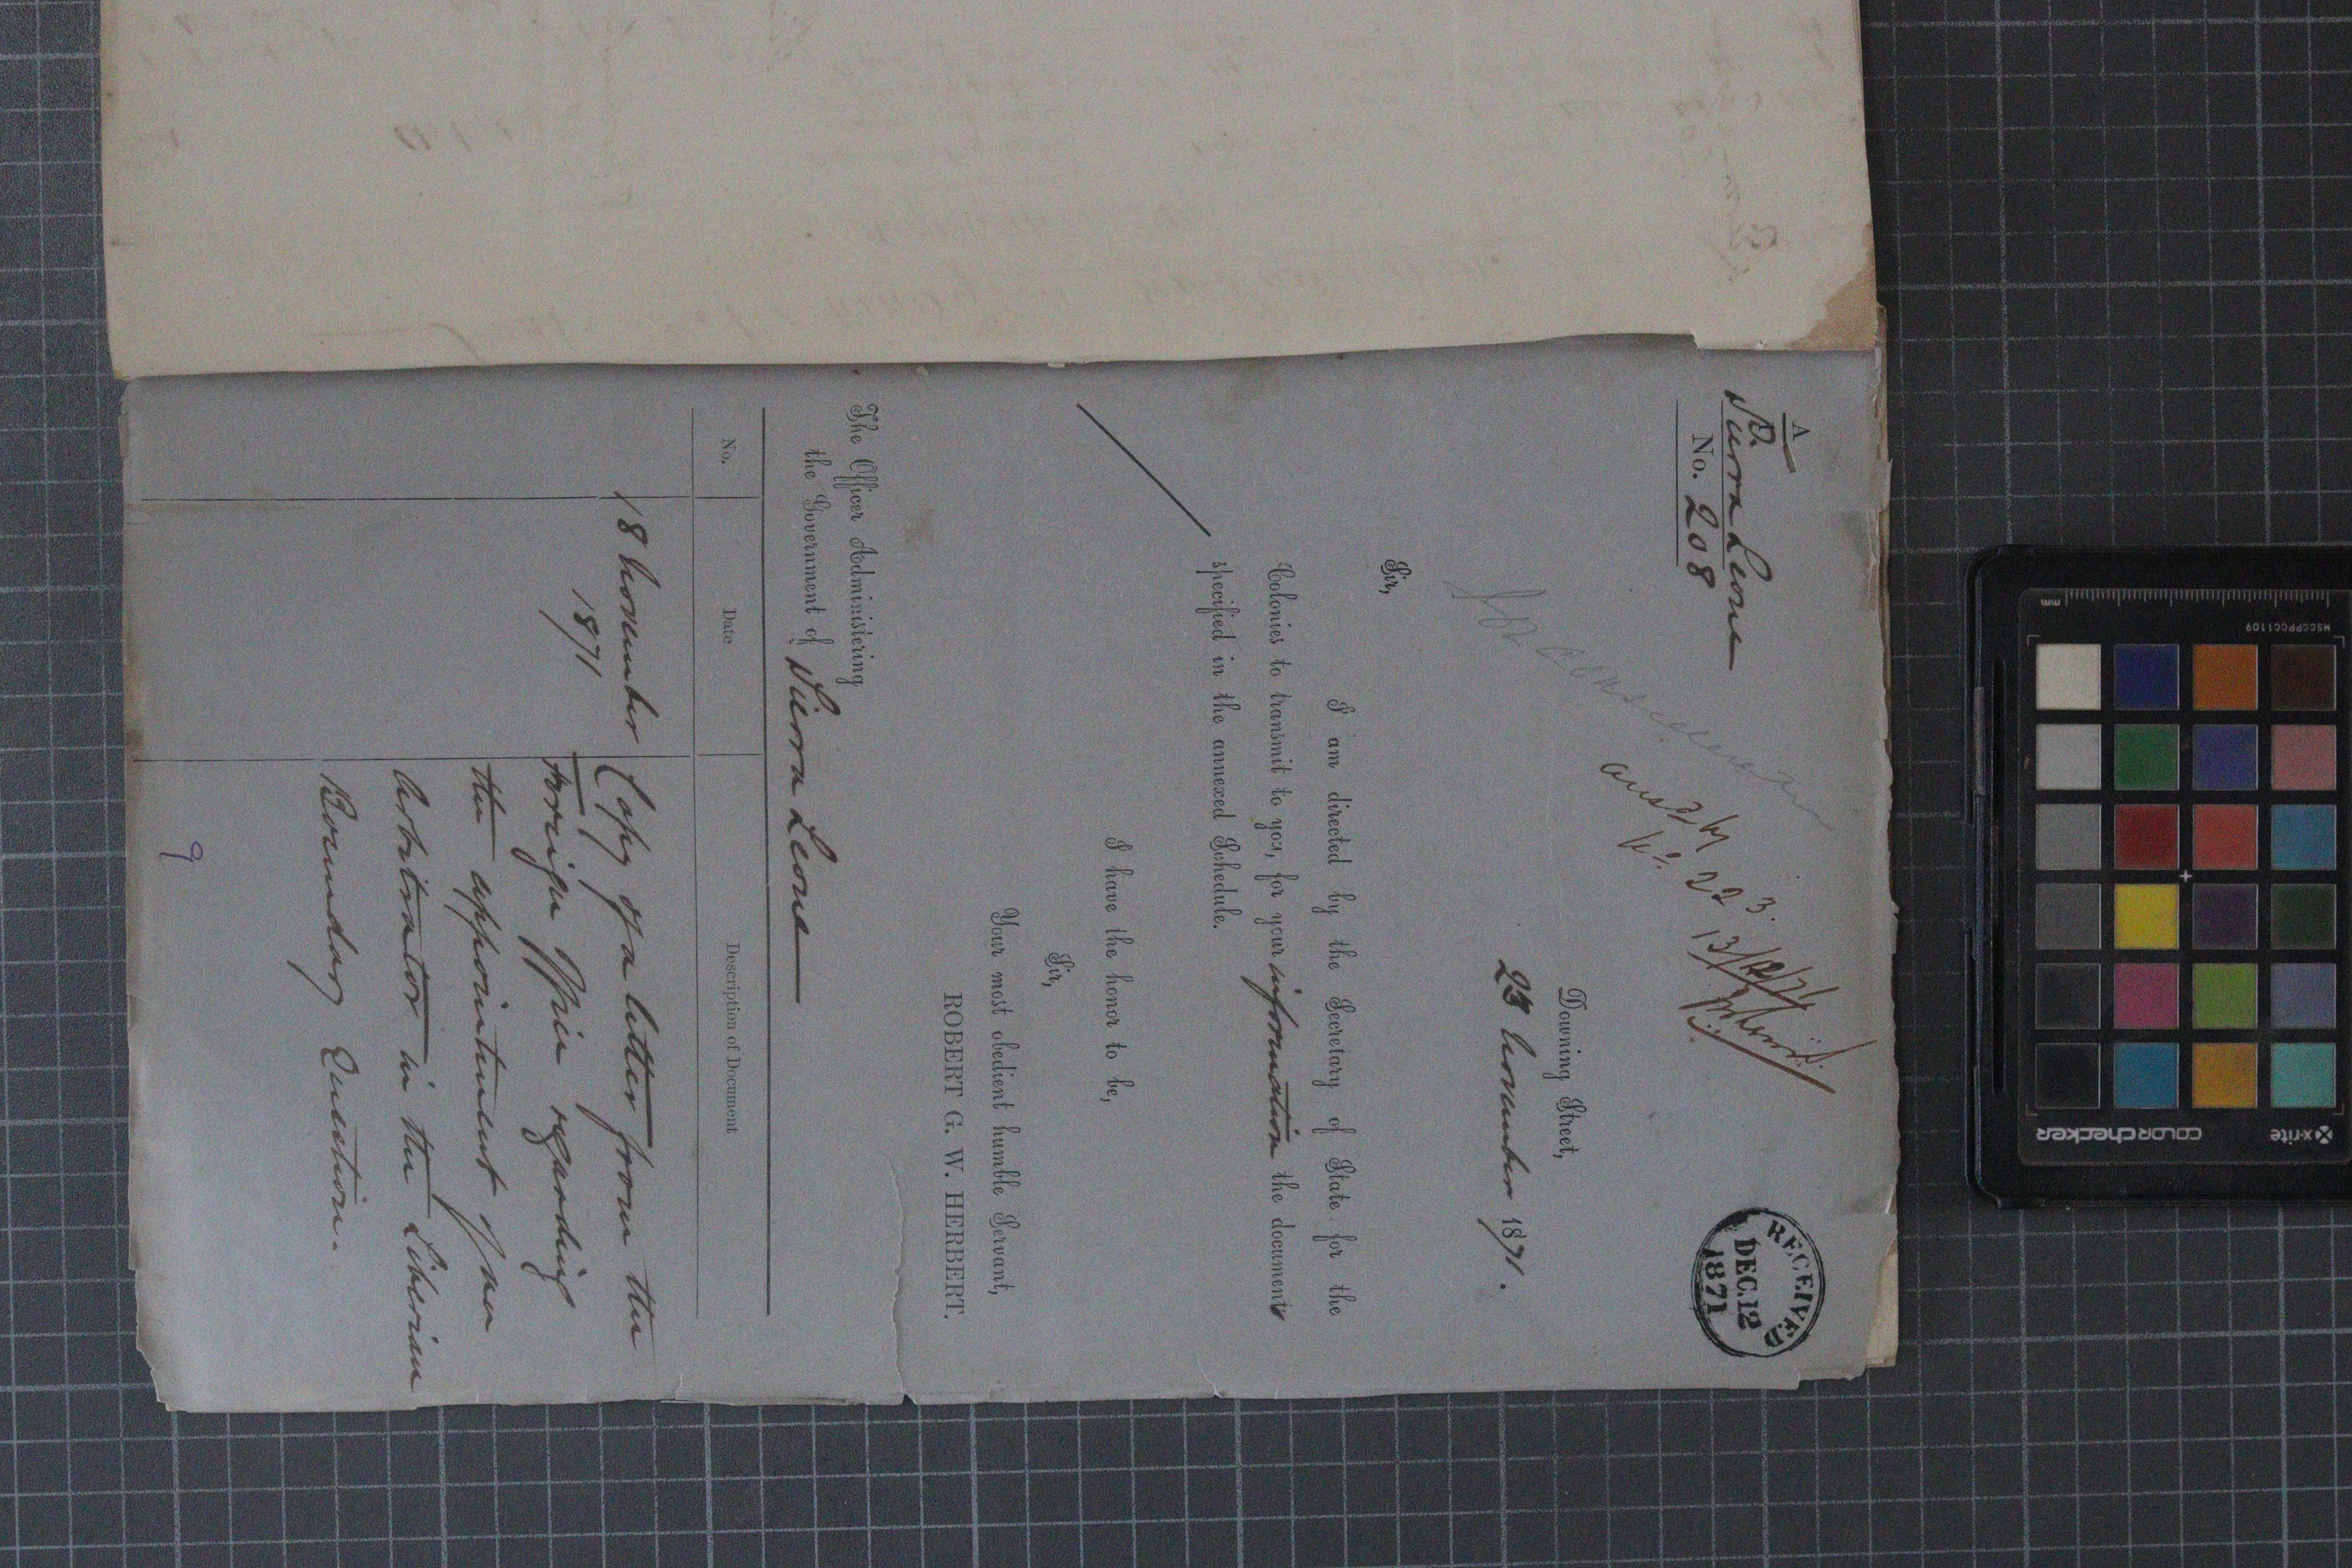 A
Sierra Leone
No. 208
RECEIVED
DEC. 12
1871
ansd by
No. 223.
13/12/71
Downing Street,
23 November 1871.
Sir,
I am directed by the Secretary of State for the
Colonies to transmit to you, for your information the documents
specified in the annexed Schedule.
I have the honor to be,
Sir,
Your most obedient humble Servant,
ROBERT G. W. HERBERT.
The Officer Administering
the Government of Sierra Leone
No.
Date
Description of Document
18 November
1871
Copy of a letter from the
Foreign Office regarding
the appointment of an
Arbitrator in the Liberian
Boundary Question.
9
mm
MSCCPPCC1109
x-rite
colorchecker